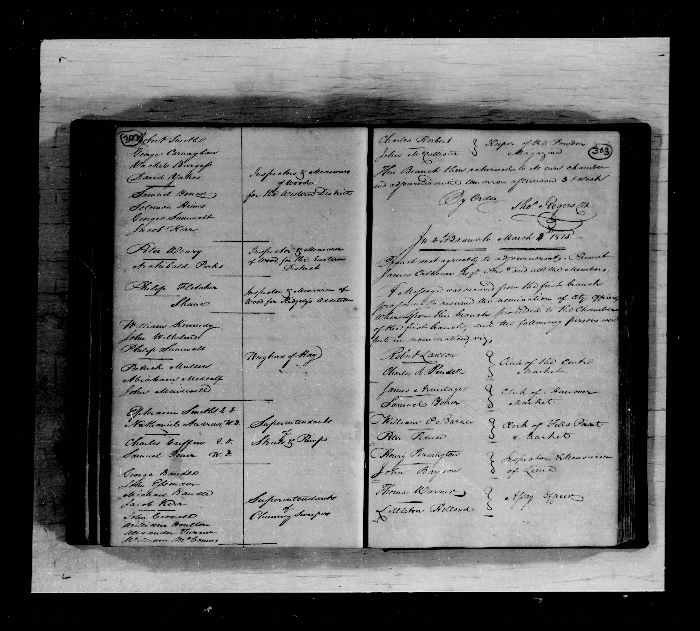 302
Robert Smith
George Carnaghan
David
Samuel
Solomon
George Sumwalt
Jacob Kerr
Inspectors & Measurers
of Wood
for the Western District
Peter
Archibald Parks
Inspector & Measurer
of Wood for the Eastern
District
Philip Fletcher
Shaw
Inspector & Measurer of
Wood for Ridgely's Addition
William Kennedy
John
Philip Sumwalt
Patrick
Abraham Metcalf
John
Weighers of Hay
Ephraim Smith E.D.
Nathaniel Andrews W.D.
Charles Griffin E.D.
Samuel W.D.
Superintendants
of
Streets & Pumps
George Bandle
John
Michael Bandle
Jacob Kerr
John
William
Alexander Turner
William McComas
Superintendants
of
Chimney Sweeps
303
Charles Herbert
John McCallister
Keeper of the Powder
Magazine
This Branch then returned to its own chamber
and adjourned until tomorrow afternoon 3 o'clock
By Order
Thos Rogers Clk
In 2d Branch March 1815
Board met agreeably to adjournment. Present
James Calhoun Esqr. Prest. and all the members.
A Message was received from the first branch
proposing to resume the nomination of City Officers
whereupon this branch proceeded to the Chamber
of the first branch, and the following persons were
put in nomination, viz,
Robert Lawson
Charles R. Pindell
Clerk of the Centre
Market
James Armitage
Samuel
Clerk of Hanover
Market
William C. Barnes
Peter
Clerk of Fells Point
Market
Henry Pennington
John Bryson
Inspector & Measurer
of Lime
Thomas Warner
Littleton Holland
Assay Officer